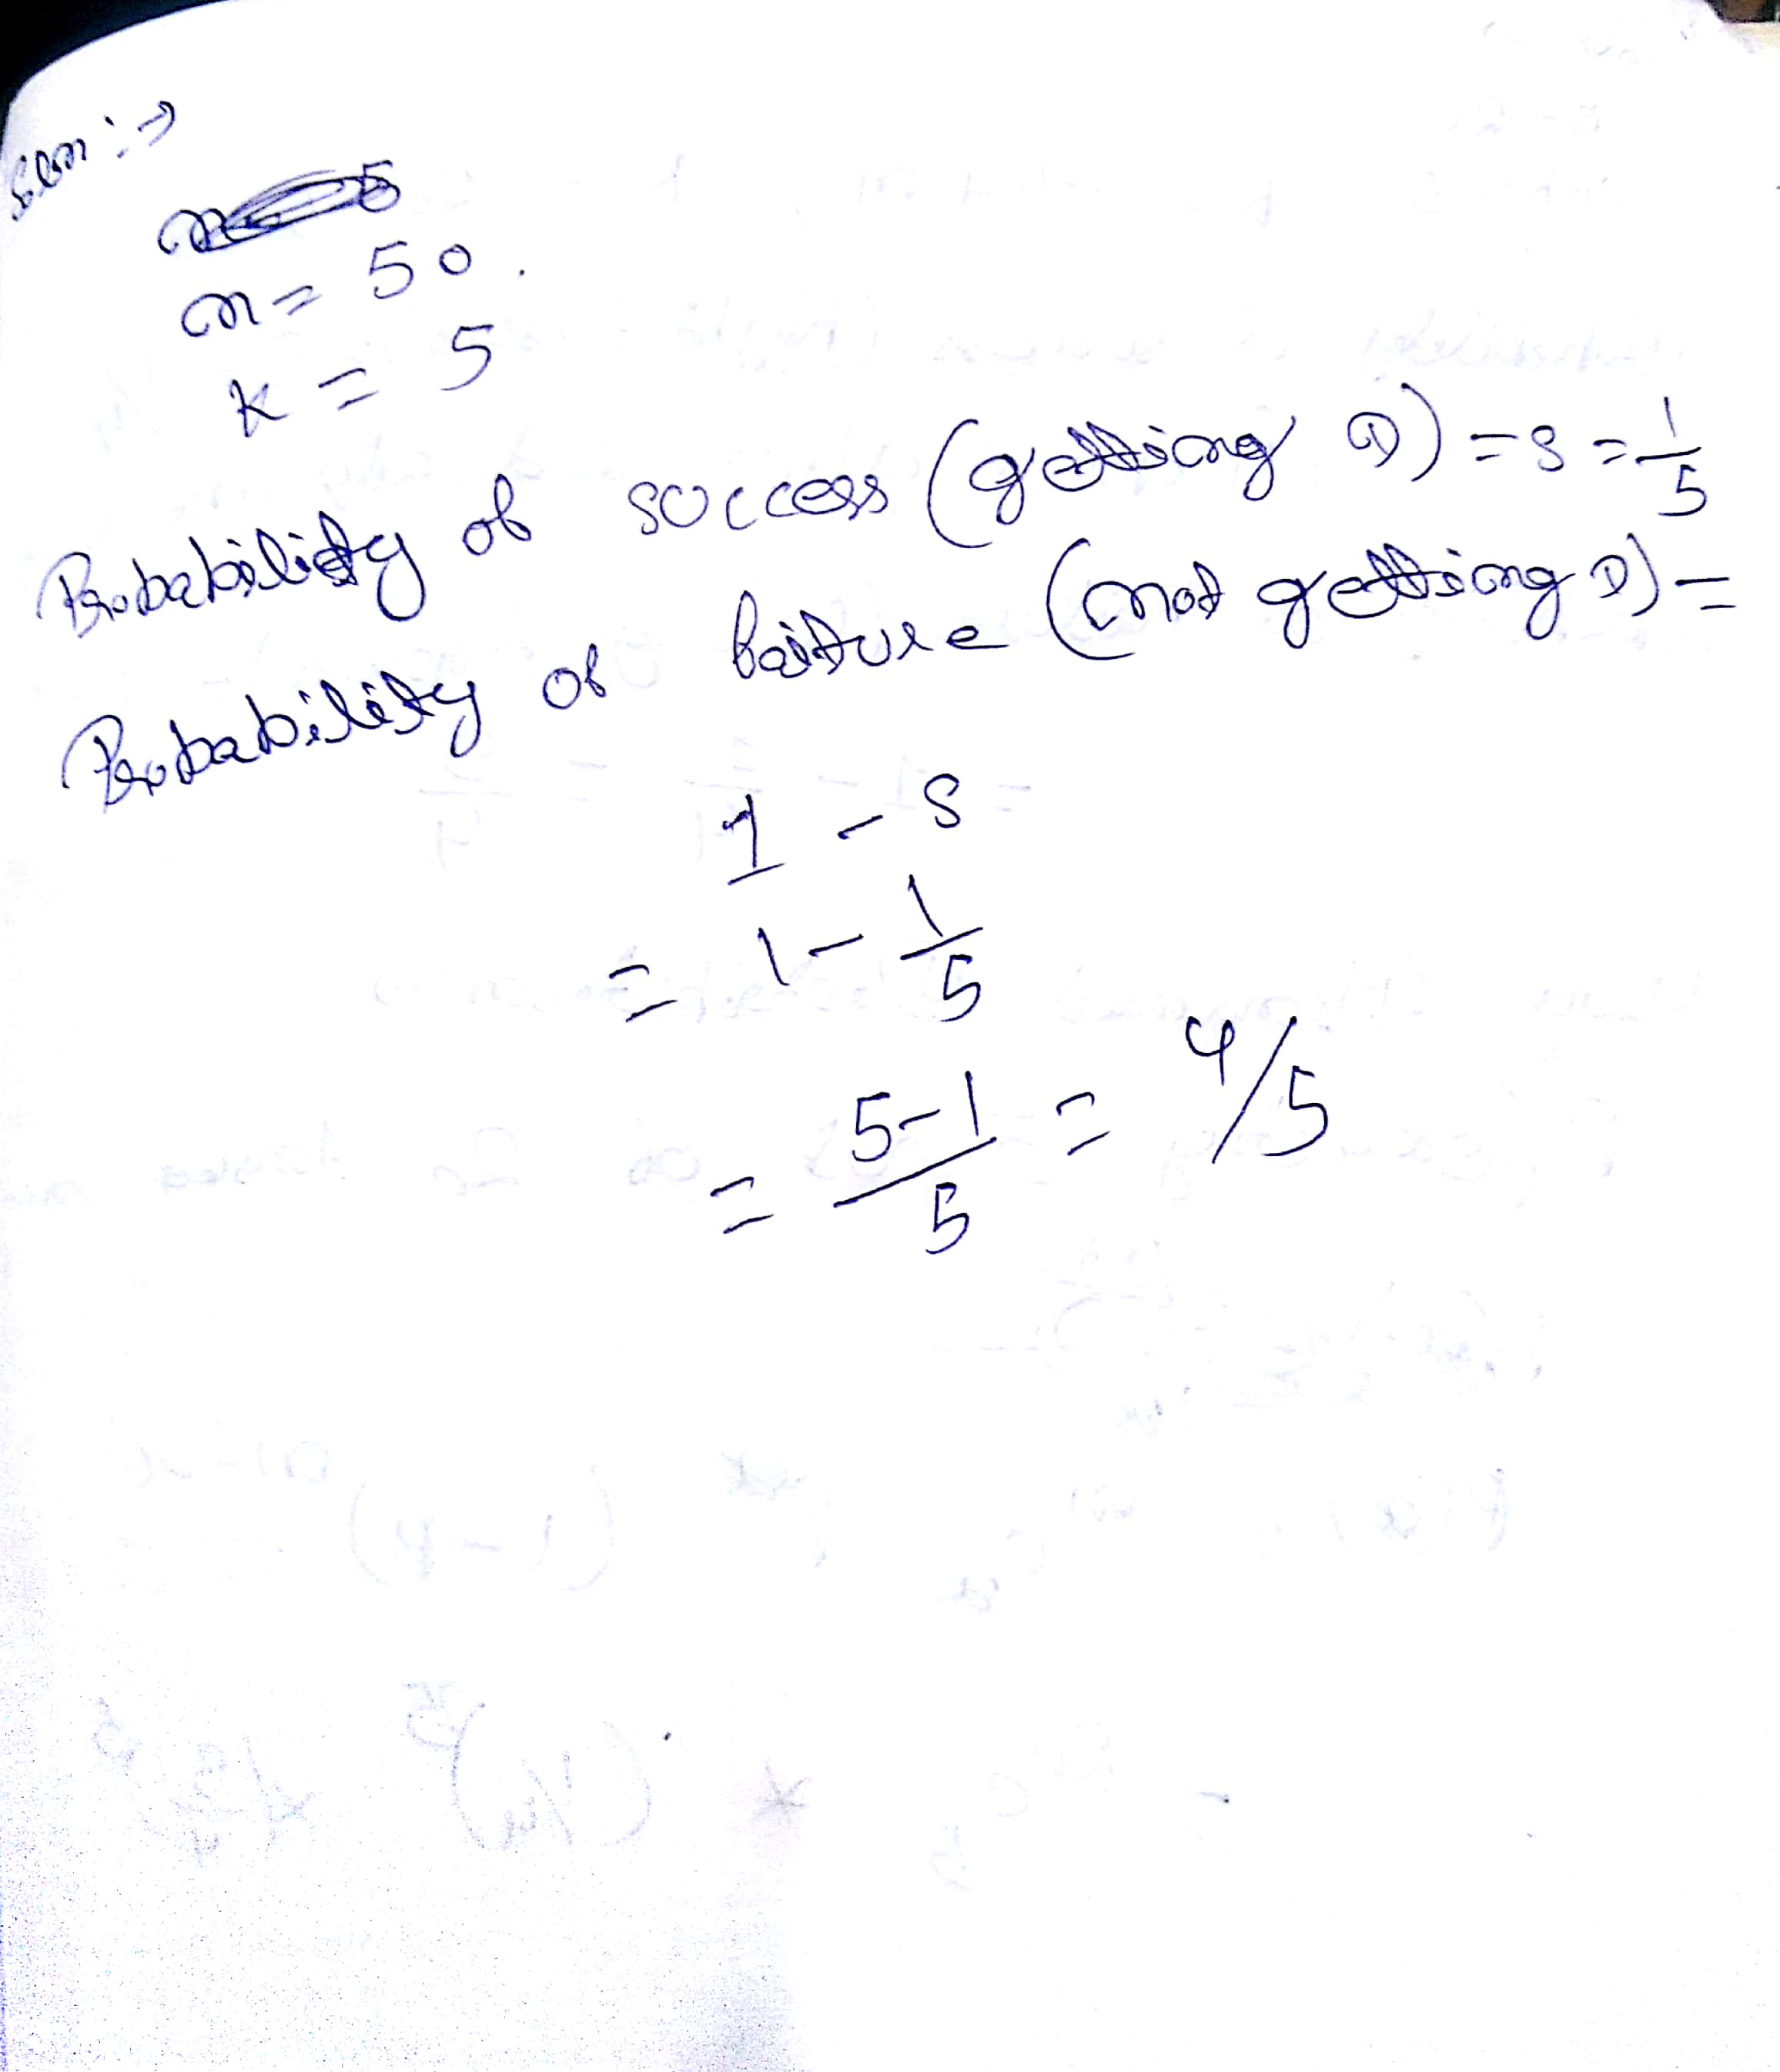 Soln :→
n = 50.
k = 5
Probability of success (getting D) = s = 1/5
Probability of failure (not getting D) =
1 - s
= 1 - 1/5
= 5-1/5 = 4/5